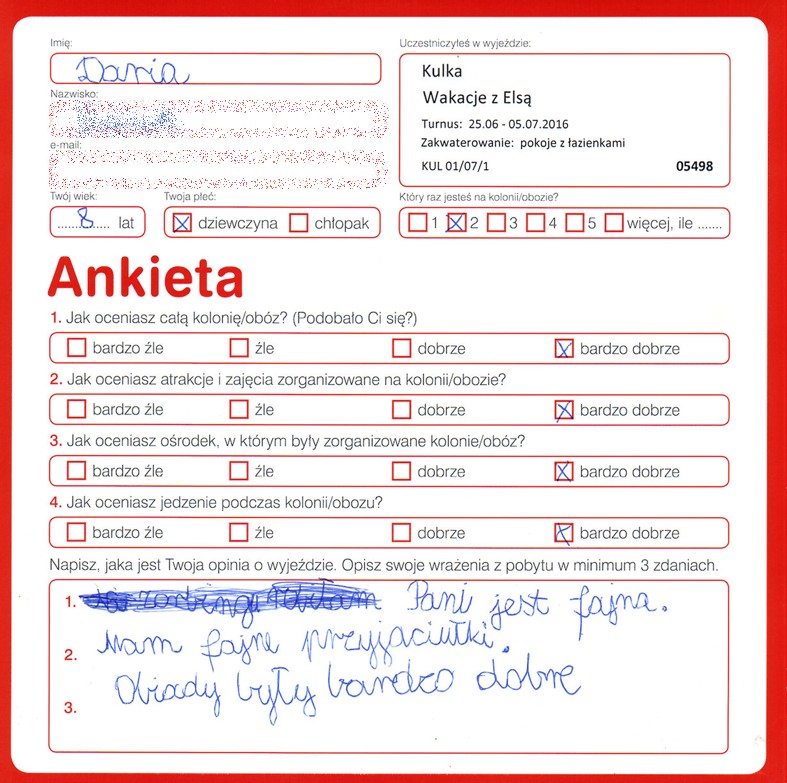 Imię:
Daria
Nazwisko:
e-mail:
Twój wiek:
8 lat
Twoja płeć:
dziewczyna chłopak
Uczestniczyłeś w wyjeździe:
Kulka
Wakacje z Elsą
Turnus: 25.06 - 05.07.2016
Zakwaterowanie: pokoje z łazienkami
KUL 01/07/1 05498
Który raz jesteś na kolonii/obozie?
1 2 3 4 5 więcej, ile .......
Ankieta
1. Jak oceniasz całą kolonię/obóz? (Podobało Ci się?)
bardzo źle źle dobrze bardzo dobrze
2. Jak oceniasz atrakcje i zajęcia zorganizowane na kolonii/obozie?
bardzo źle źle dobrze bardzo dobrze
3. Jak oceniasz ośrodek, w którym były zorganizowane kolonie/obóz?
bardzo źle źle dobrze bardzo dobrze
4. Jak oceniasz jedzenie podczas kolonii/obozu?
bardzo źle źle dobrze bardzo dobrze
Napisz, jaka jest Twoja opinia o wyjeździe. Opisz swoje wrażenia z pobytu w minimum 3 zdaniach.
1. Pani jest fajna.
2. Mam fajne przyjaciułki.
3. Obiady były bardzo dobre